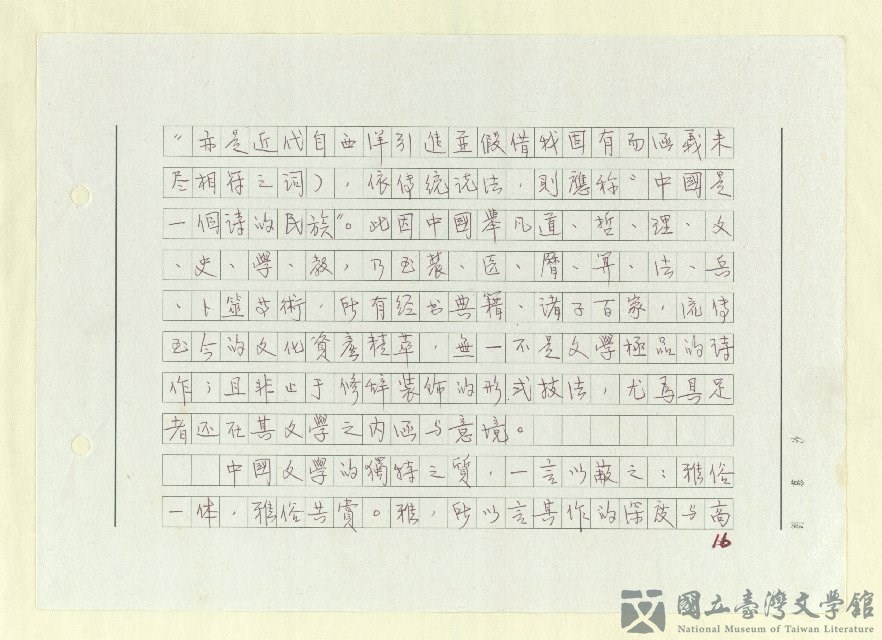 ”亦是近代自西洋引進並假借我固有而涵義未
尽相符之词），依传統说法，則應称“中國是
一個诗的民族”。此因中國舉凡道、哲、理、文
、史、學、教，乃至農、医、曆、算、法、兵
、卜筮艺術，所有经书典籍、诸子百家，流传
至今的文化資產精萃，無一不是文學極品的诗
作；且非止于修辞装饰的形式技法，尤為具足
者还在其文學之内涵与意境。
中國文學的獨特之質，一言以蔽之：雅俗
一体，雅俗共賞。雅，所以言其作的深度与高
16
國立臺灣文學館
National Museum of Taiwan Literature